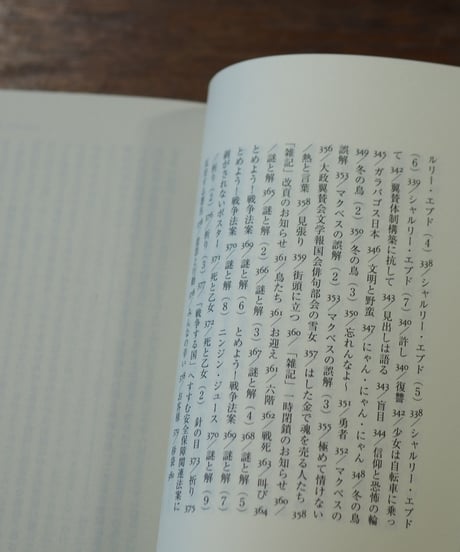 ルリー・エブド（4）338／シャルリー・エブド（5）338／シャルリー・エブド
（6）339／シャルリー・エブド（7）340／許し 340／復讐 342／少女は自転車に乗っ
て 342／翼賛体制構築に抗して 343／見出しは語る 343／盲目 344／信仰と恐怖の輪
345／ガラパゴス日本 346／文明と野蛮 347／にゃん・にゃん・にゃん 348／冬の鳥
349／冬の鳥（2）350／冬の鳥（3）350／忘れんなよ〜 351／勇者 352／マクベスの
誤解 353／マクベスの誤解（2）353／マクベスの誤解（3）355／極めて情けない
356／大政翼賛会文学報国会俳句部会の雪女 357／はした金で魂を売る人たち 358
／熱と言葉 358／見張り 359／街頭に立つ 360／「雑記」一時閉鎖のお知らせ 360／
「雑記」改頁のお知らせ 361／鳥たち 361／お迎え 361／六階 362／戦死 363／叫び 364
／謎と解 365／謎と解（2）366／謎と解（3）367／謎と解（4）368／謎と解（5）
とめよう！戦争法案 369／謎と解（6）とめよう！戦争法案 369／謎と解（7）
とめよう！戦争法案 370／謎と解（8）ニンジン・ジュース 370／謎と解（9）
剥がされないポスター 371／死と乙女 372／死と乙女（2）針の目 373／祈り 375
／祈り（2）376／祈り（3）377／「戦争する国」へすすむ安全保障関連法案に
みんなの幸い 378／お客様 379／